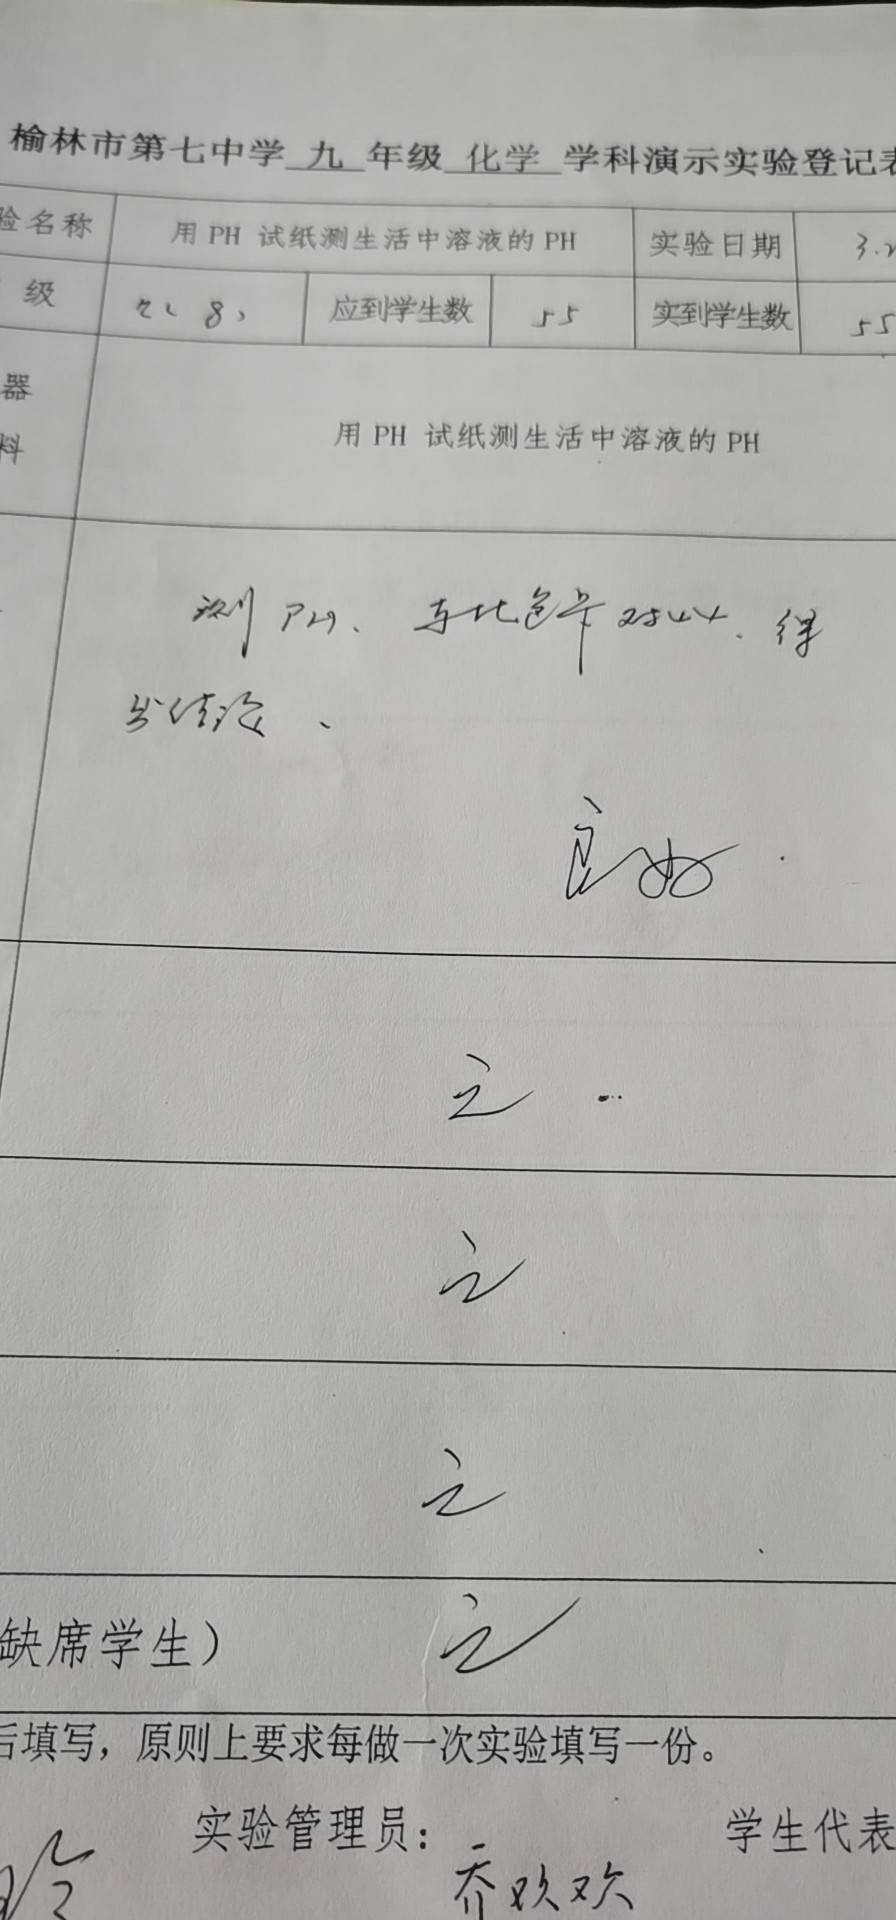 榆林市第七中学 九 年级 化学 学科演示实验登记表
验名称 用 PH 试纸测生活中溶液的 PH 实验日期 3.2
级 8 应到学生数 55 实到学生数 55
器
料
用 PH 试纸测生活中溶液的 PH
测 PH、与比色卡对比、得
出结论、
良好
无
无
无
缺席学生） 无
后填写，原则上要求每做一次实验填写一份。
实验管理员： 学生代表
乔欢欢